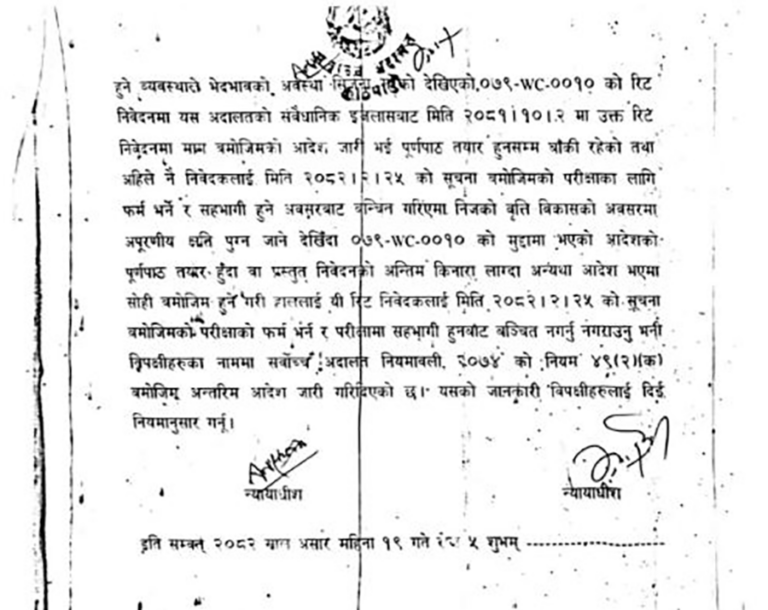 हुने व्यवस्थाले भेदभावको अवस्था सिर्जना को देखिएको,०७९-WC-००१० को रिट
निवेदनमा यस अदालतको संवैधानिक इजलासबाट मिति २०८१।१०।२ मा उक्त रिट
निवेदनमा माग बमोजिमको आदेश जारी भई पूर्णपाठ तयार हुनसम्म बाँकी रहेको तथा
अहिले नै निवेदकलाई मिति २०८२।२।२५ को सूचना बमोजिमको परीक्षाका लागि
फर्म भर्ने र सहभागी हुने अवसरबाट बन्चित गरिएमा निजको बृत्ति बिकासको अवसरमा
अपूरणीय क्षति पुग्न जाने देखिँदा ०७९-WC-००१० को मुद्दामा भएको आदेशको
पूर्णपाठ तयार हुँदा वा प्रस्तुत निवेदनको अन्तिम किनारा लाग्दा अन्यथा आदेश भएमा
सोही बमोजिम हुने गरी हाललाई यी रिट निवेदकलाई मिति २०८२।२।२५ को सूचना
बमोजिमको परीक्षाको फर्म भर्न र परीक्षामा सहभागी हुनबाट बञ्चित नगर्नु नगराउनु भनी
विपक्षीहरुका नाममा सर्वोच्च अदालत नियमावली, २०७४ को नियम ४९(२)(क)
बमोजिम अन्तरिम आदेश जारी गरिदिएको छ। यसको जानकारी विपक्षीहरुलाई दिई
नियमानुसार गर्नू।
न्यायाधीश
न्यायाधीश
इति सम्वत् २०८२ साल असार महिना १९ गते रोज ५ शुभम्